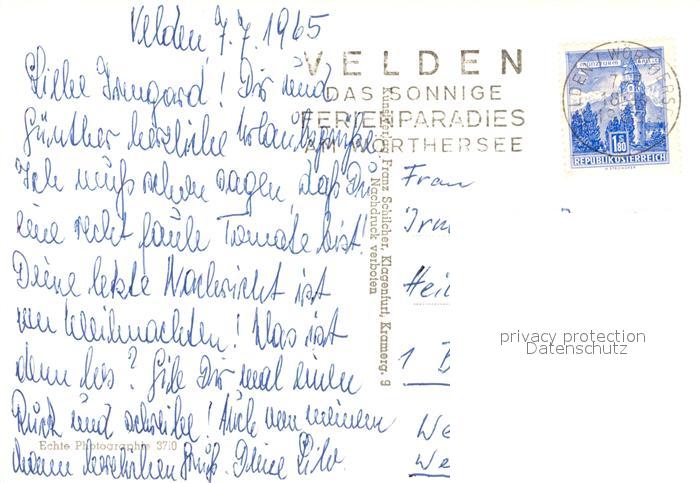 Velden 7.7.1965
Liebe Irmgard! Dir und
Günther herzliche Urlaubsgrüße
Ich muß schon sagen daß Du
eine recht faule Tomate bist!
Deine letzte Nachricht ist
von Weihnachten! Was ist
denn los? Gib Dir mal einen
Ruck und schreibe! Auch von meinem
Mann herzlichen Gruß. Deine
Echte Photographie 3710
Kunstverlag Franz Schilcher, Klagenfurt, Kramerg. 9
Nachdruck verboten
VELDEN
DAS SONNIGE
FERIENPARADIES
AM WÖRTHERSEE
MÜNZTURM
1.80
REPUBLIK ÖSTERREICH
Frau
Irm
Hei
1 B
We
We
privacy protection
Datenschutz